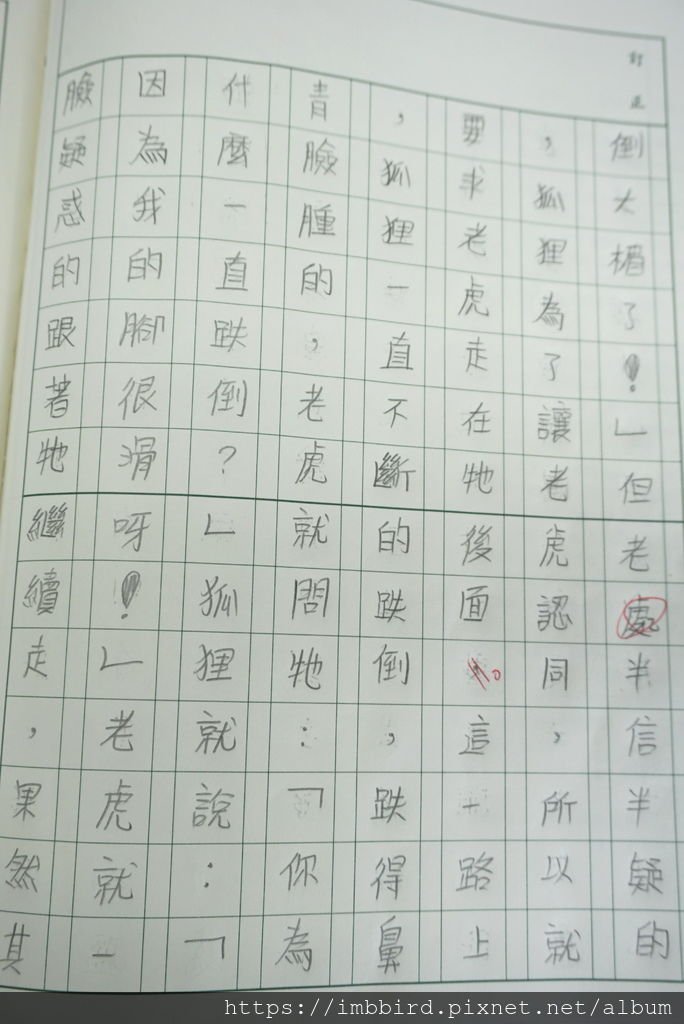 訂正
倒大楣了！」但老處半信半疑的
，狐狸為了讓老虎認同，所以就
要求老虎走在牠後面。這一路上
，狐狸一直不斷的跌倒，跌得鼻
青臉腫的，老虎就問牠：「你為
什麼一直跌倒？」狐狸就說：「
因為我的腳很滑呀！」老虎就一
臉疑惑的跟著牠繼續走，果然其
https://imbbird.pixnet.net/album